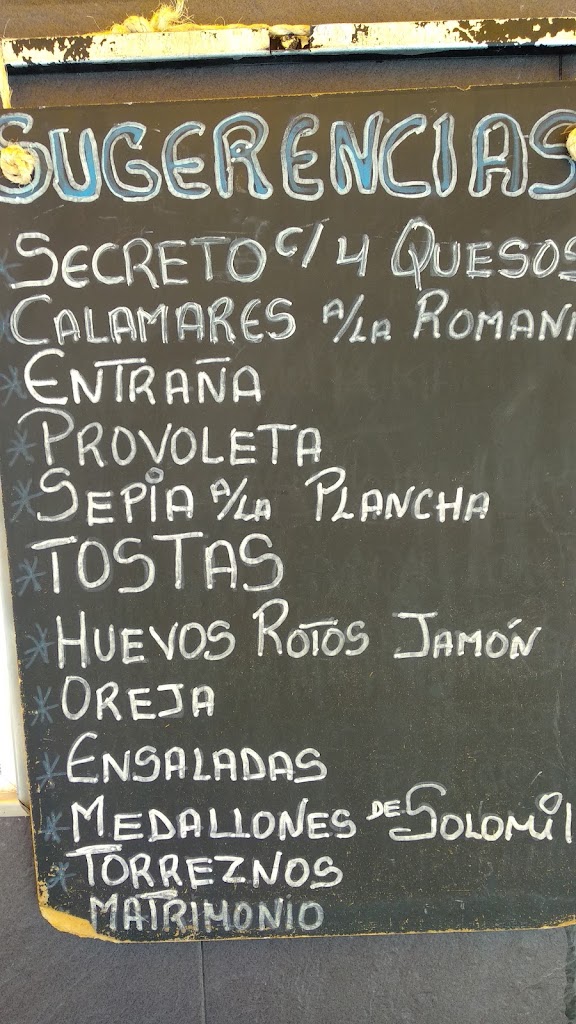 SUGERENCIAS
* SECRETO C/ 4 QUESOS
* CALAMARES A/LA ROMANA
* ENTRAÑA
* PROVOLETA
* SEPIA A/LA PLANCHA
* TOSTAS
* HUEVOS ROTOS JAMÓN
* OREJA
* ENSALADAS
* MEDALLONES DE SOLOMIL
* TORREZNOS
MATRIMONIO